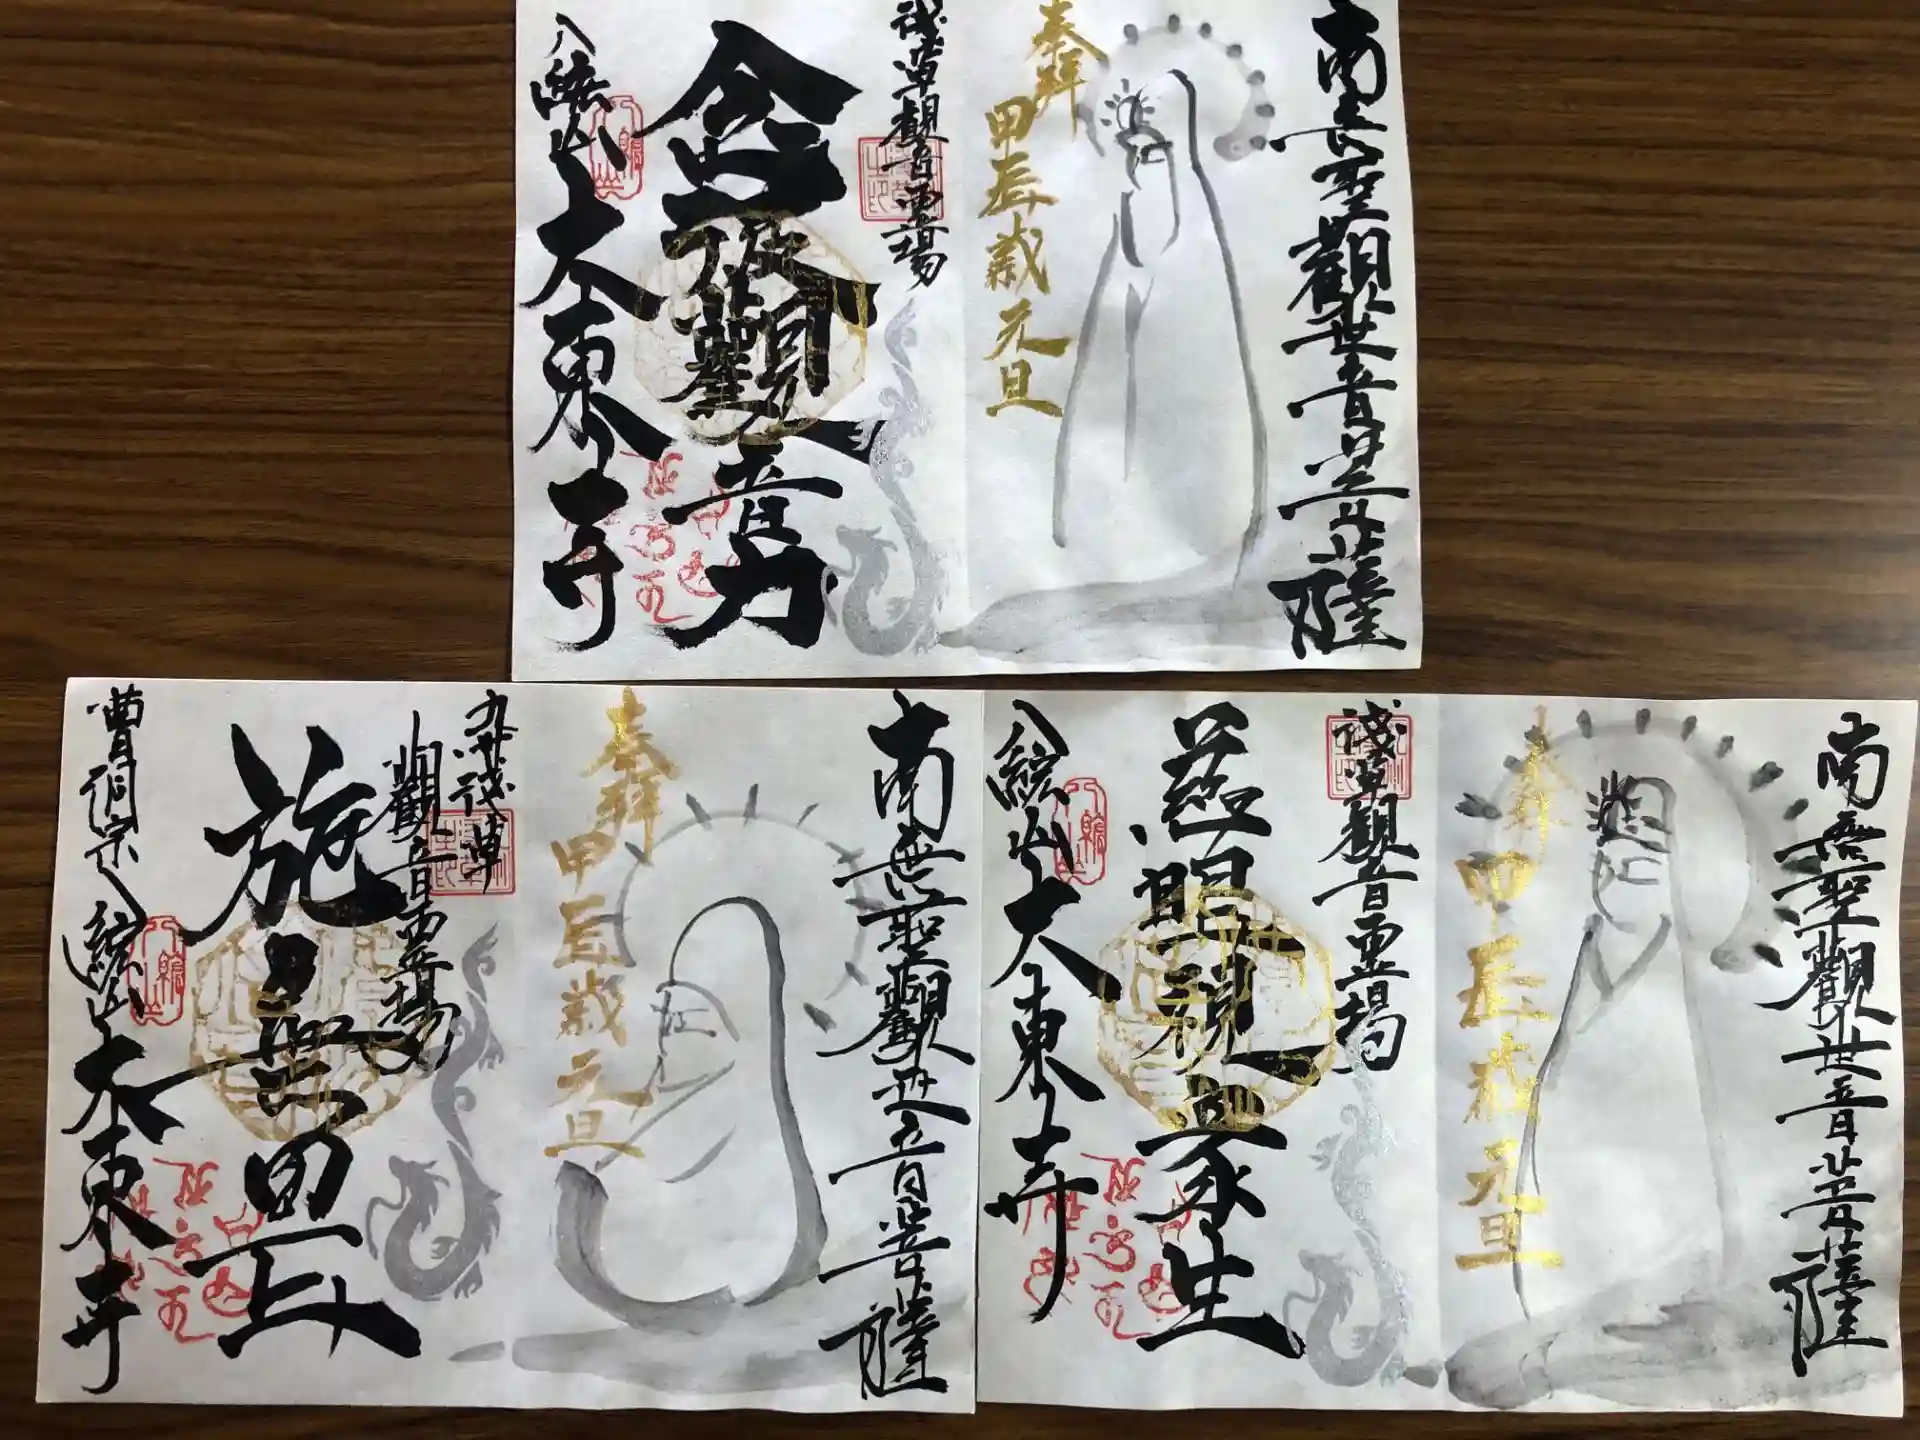 南無聖観世音菩薩
奉拝
甲辰歳元旦
浅草観音霊場
念彼観音力
大東寺
南無聖観世音菩薩
奉拝
甲辰歳元旦
九州浅草
観音霊場
施無畏
曹洞宗八總山大東寺
南無聖観世音菩薩
奉拝
甲辰歳元旦
浅草観音霊場
慈眼視衆生
大東寺